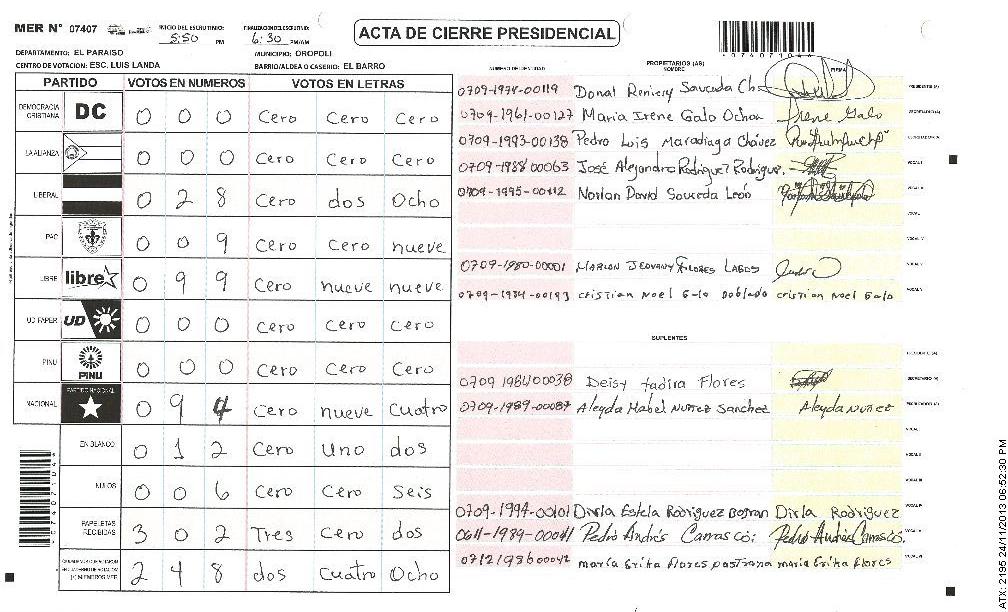 MER N° 07407
INICIO DEL ESCRUTINIO: 5:50 PM
FINALIZACION DEL ESCRUTINIO: 6:30 PM/AM
ACTA DE CIERRE PRESIDENCIAL
DEPARTAMENTO: EL PARAISO
MUNICIPIO: OROPOLI
CENTRO DE VOTACION: ESC. LUIS LANDA
BARRIO/ALDEA O CASERIO: EL BARRO
PARTIDO VOTOS EN NUMEROS VOTOS EN LETRAS
DEMOCRACIA CRISTIANA DC 0 0 0 Cero Cero Cero
LA ALIANZA 0 0 0 Cero Cero Cero
LIBERAL 0 2 8 Cero dos Ocho
PAC 0 0 9 Cero Cero nueve
LIBRE libre 0 9 9 Cero nueve nueve
UD FAPER UD 0 0 0 Cero Cero Cero
PINU PINU 0 0 0 Cero Cero Cero
NACIONAL PARTIDO NACIONAL 0 9 4 Cero nueve Cuatro
EN BLANCO 0 1 2 Cero Uno dos
NULOS 0 0 6 Cero Cero Seis
PAPELETAS RECIBIDAS 3 0 2 Tres Cero dos
2 4 8 dos Cuatro Ocho
NUMERO DE IDENTIDAD PROPIETARIOS (AS) NOMBRE FIRMA
0709-1974-00119 Donal Reniery Sauceda
0709-1961-00127 Maria Irene Galo Ochoa Irene Galo
0709-1993-00138 Pedro Luis Maradiaga Chávez
0709-1988 00063 José Alejandro Rodriguez Rodriguez
0709-1995-00112 Norlan David Sauceda León
0709-1980-00001 MARLON JEOVANY FLORES LAGOS
0709-1984-00193 cristian Noel Galo Doblado cristian Noel Galo
SUPLENTES
0709 1984 00038 Deisy Yadira Flores
0709-1989-00087 Aleyda Mabel Nuñez Sanchez Aleyda Nuñez
0709-1994-00101 Dirla Estela Rodriguez Dirla Rodriguez
0611-1989-00041 Pedro Andrés Carrasco: Pedro Andrés Carrasco.
0712198600042 maria Erika flores pastrana maria Erika flores
ATX: 2195 24/11/2013 06:52:30 PM